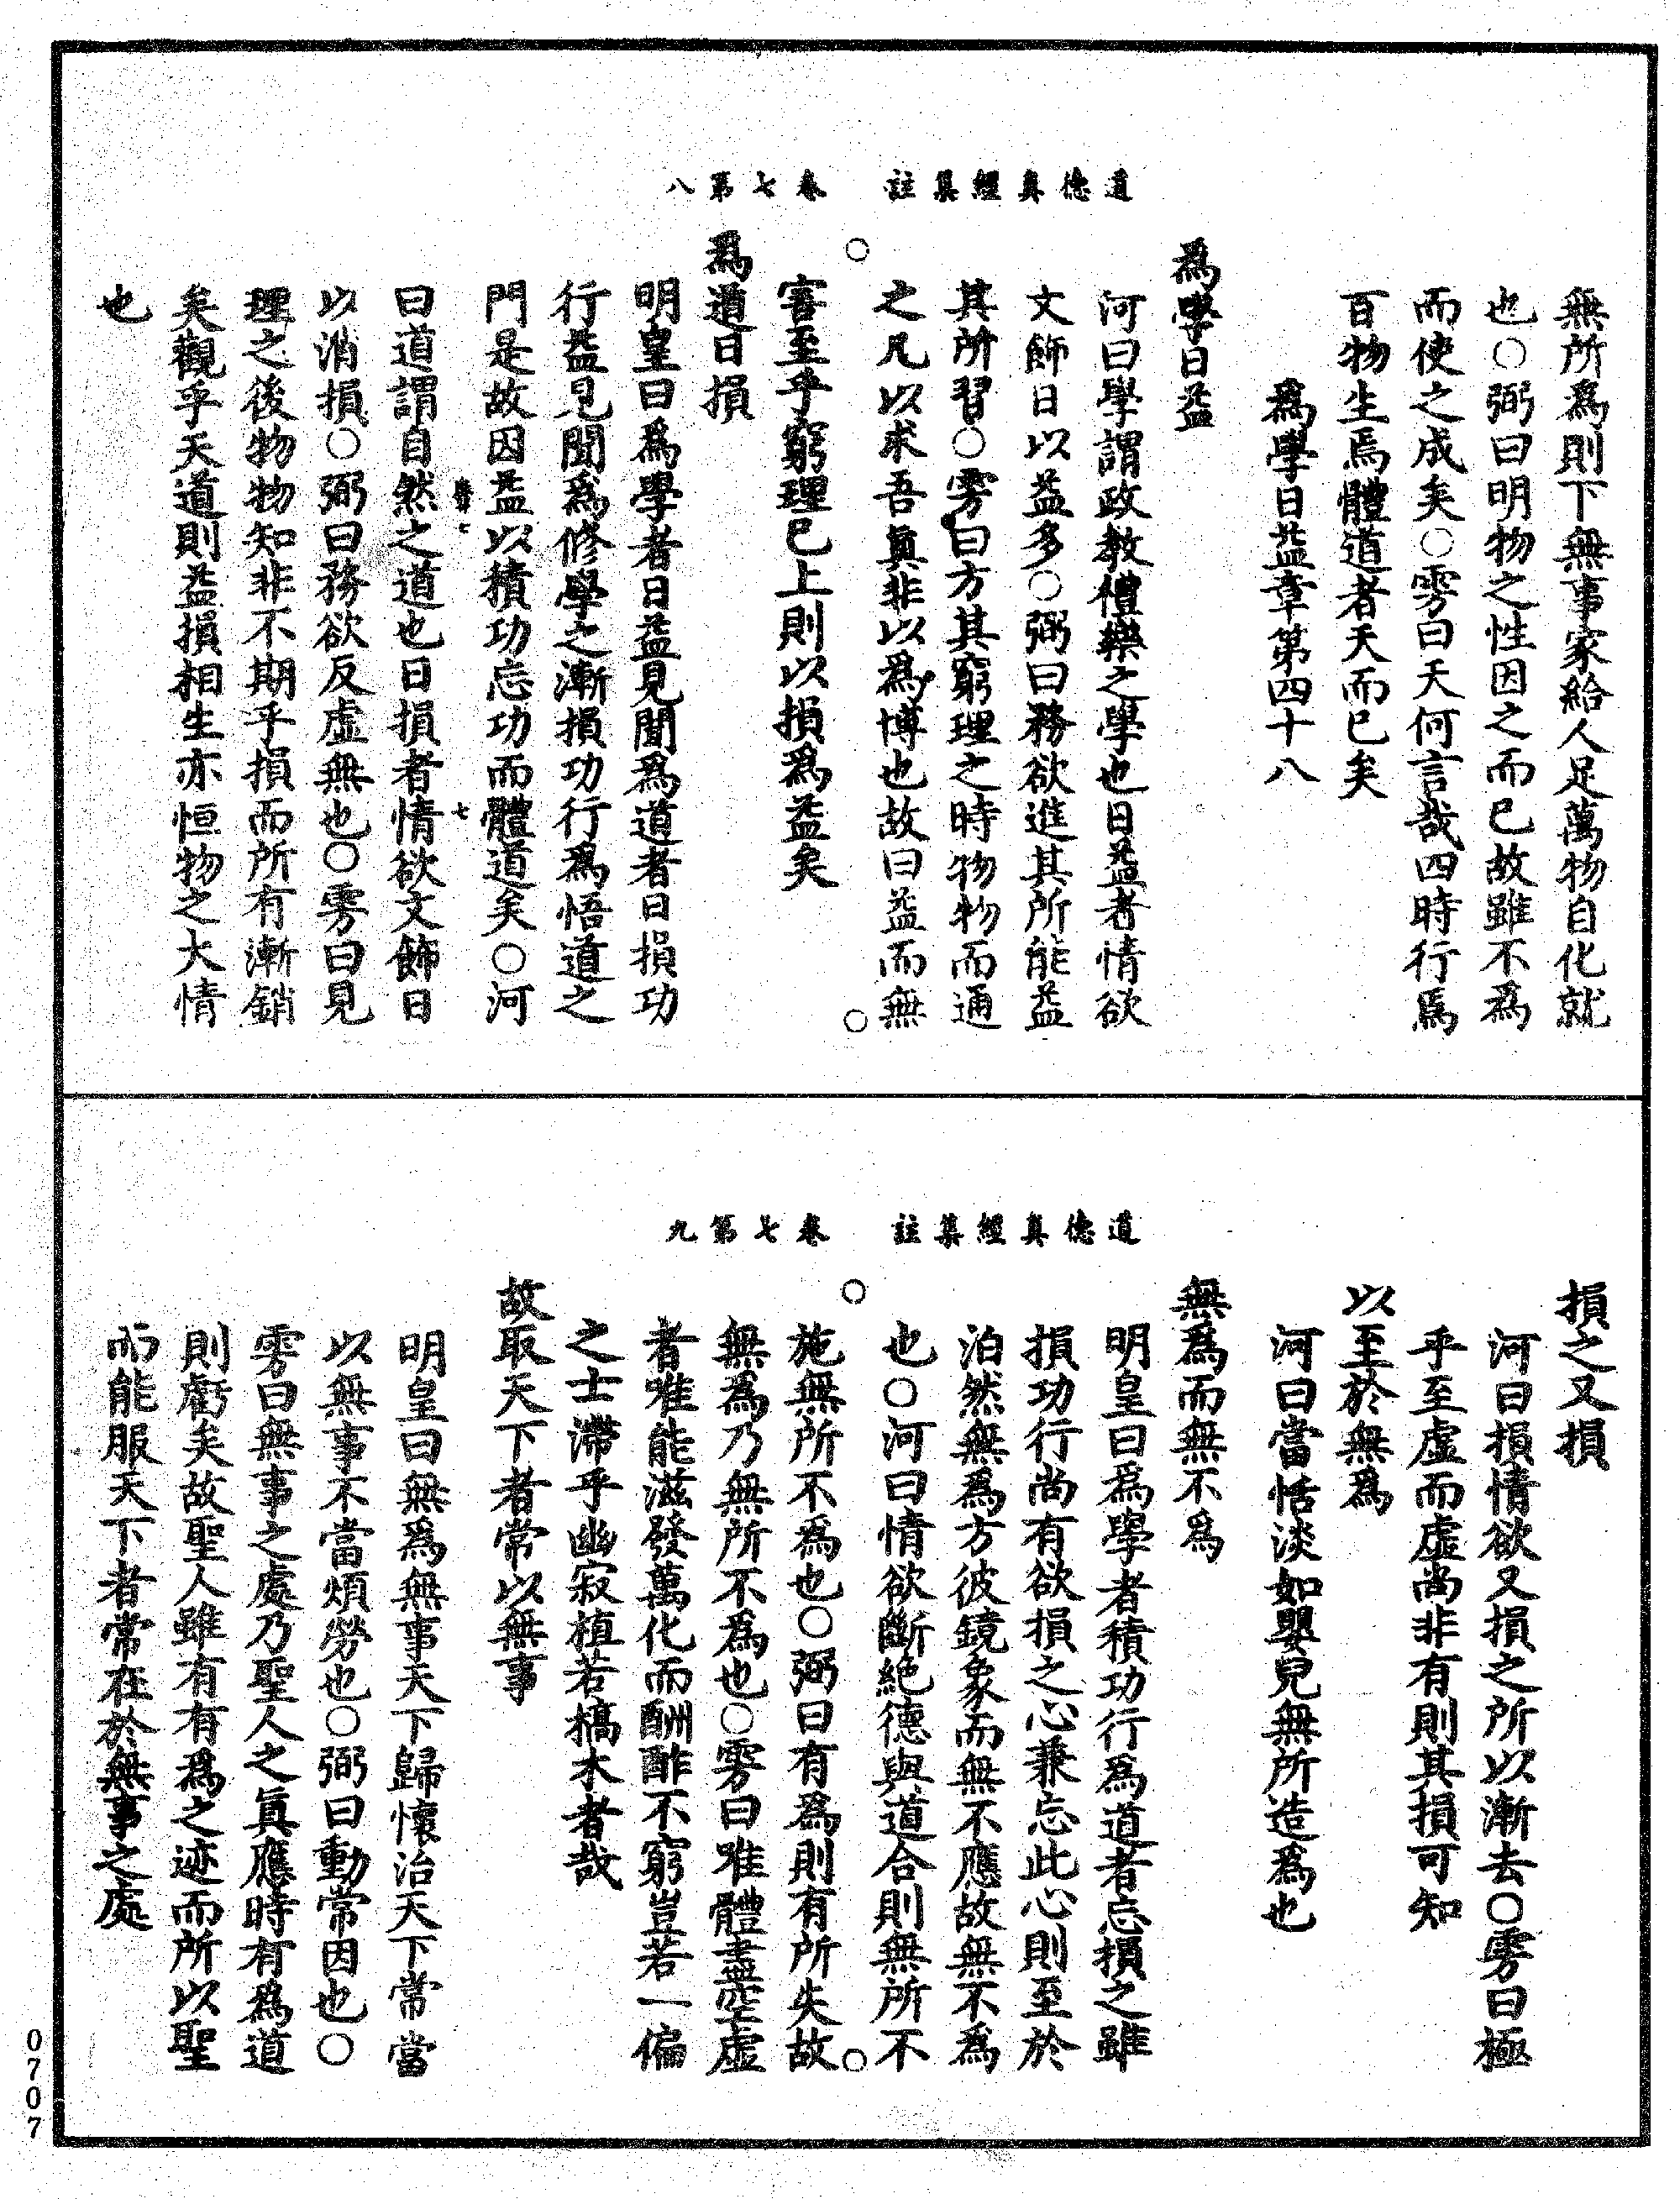 道德真經集註　卷七第八
無所爲則下無事家給人足萬物自化就
也○弼曰明物之性因之而已故雖不爲
而使之成矣○雱曰天何言哉四時行焉
百物生焉體道者天而已矣
爲學日益章第四十八
爲學日益
河曰學謂政教禮樂之學也日益者情欲
文飾日以益多○弼曰務欲進其所能益
其所習○雱曰方其窮理之時物物而通
之凡以求吾真非以爲博也故曰益而無
害至乎窮理已上則以損爲益矣
爲道日損
明皇曰爲學者日益見聞爲道者日損功
行益見聞爲修學之漸損功行爲悟道之
門是故因益以積功忘功而體道矣○河
曰道謂自然之道也日損者情欲文飾日
以消損○弼曰務欲反虛無也○雱曰見
理之後物物知非不期乎損而所有漸銷
矣觀乎天道則益損相生亦恒物之大情
也
道德真經集註　卷七第九
損之又損
河曰損情欲又損之所以漸去○雱曰極
乎至虛而虛尚非有則其損可知
以至於無爲
河曰當恬淡如嬰兒無所造爲也
無爲而無不爲
明皇曰爲學者積功行爲道者忘損之雖
損功行尚有欲損之心兼忘此心則至於
泊然無爲方彼鏡象而無不應故無不爲
也○河曰情欲斷絕德與道合則無所不
施無所不爲也○弼曰有爲則有所失故
無爲乃無所不爲也○雱曰唯體盡空虛
者唯能滋發萬化而酬酢不窮豈若一偏
之士滯乎幽寂植若槁木者哉
故取天下者常以無事
明皇曰無爲無事天下歸懷治天下常當
以無事不當煩勞也○弼曰動常因也○
雱曰無事之處乃聖人之真應時有為道
則虧矣故聖人雖有有為之迹而所以聖
而能服天下者常在於無事之處
0707